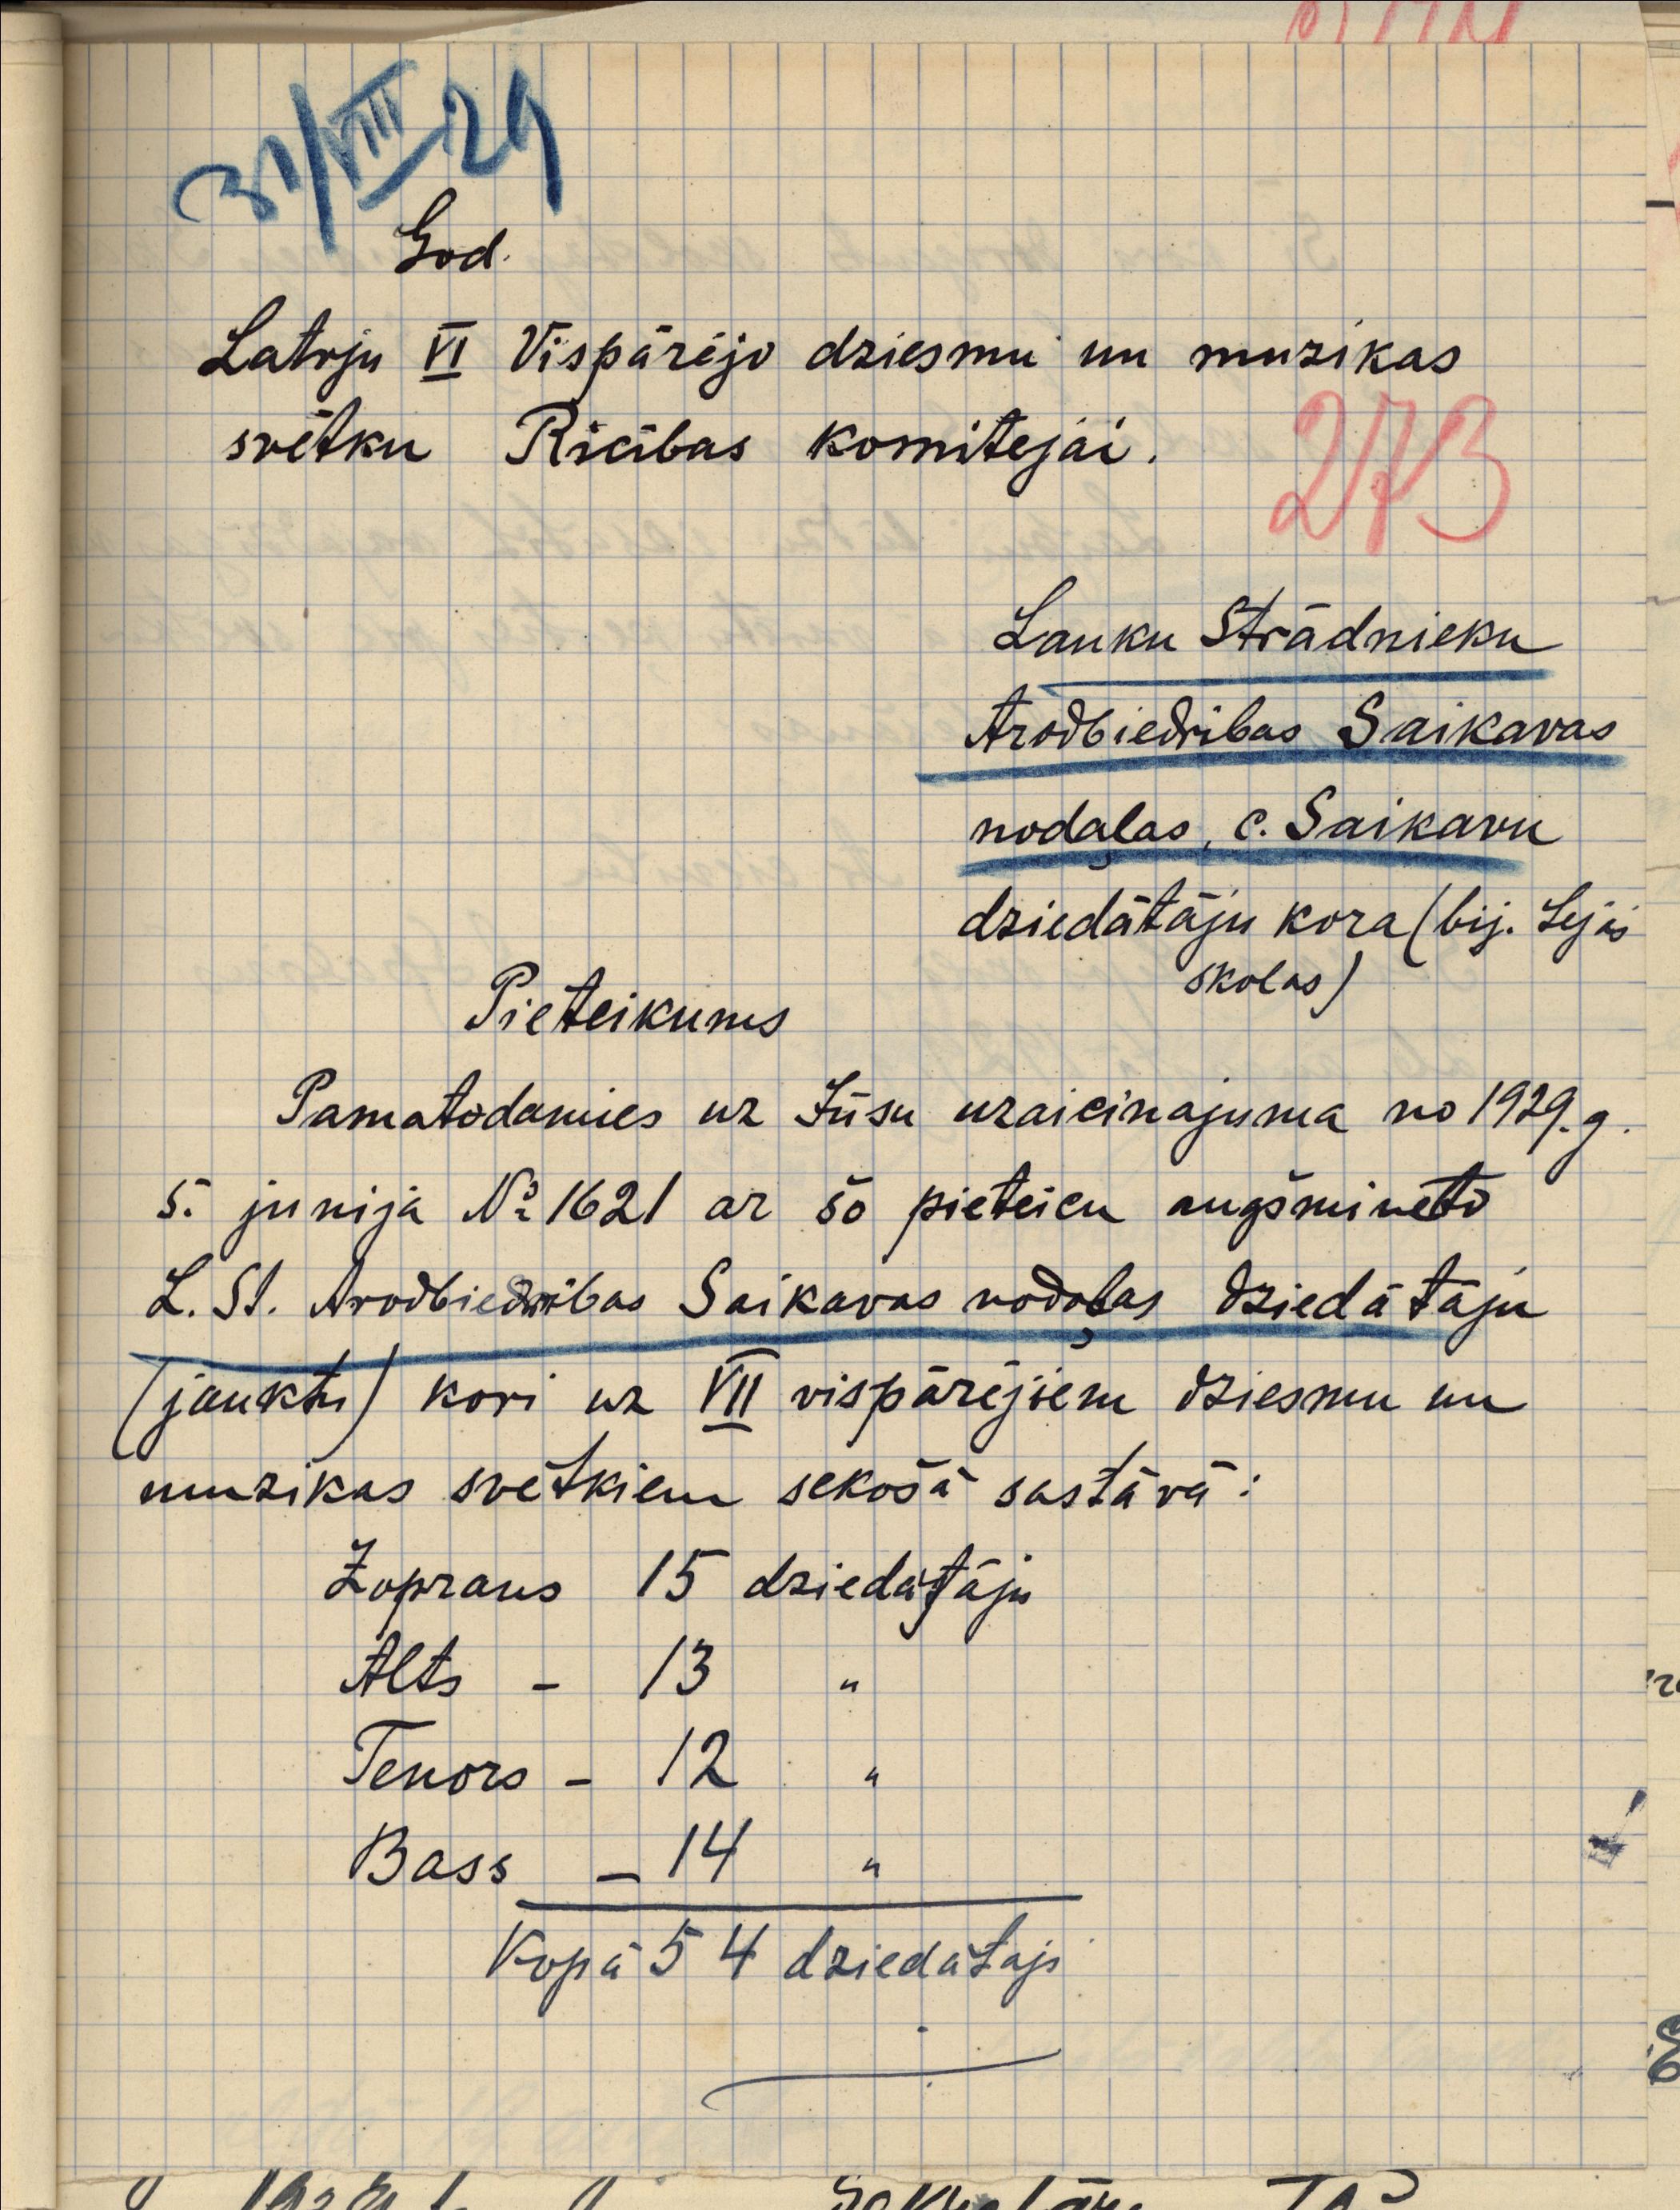 31/VIII 29
God.
Latvju VI Vispārējo dziesmu un muzikas
svētku Rīcības komitejai.
273
Lauku Strādnieku
Arodbiedrības Saikavas
nodaļas, c. Saikavu
dziedātāju kora (bij. Lejas
skolas)
Pieteikums
Pamatodamies uz Jūsu uzaicinajuma no 1929. g.
5. junija № 1621 ar šo pieteicu augšmineto
L. St. Arodbiedrības Saikavas nodaļas dziedātāju
(jauktu) kori uz VII vispārējiem dziesmu un
muzikas svētkiem sekošā sastāvā:
Zoprans 15 dziedātāju
Alts - 13 "
Tenors - 12 "
Bass - 14 "
Kopā 54 dziedātaji